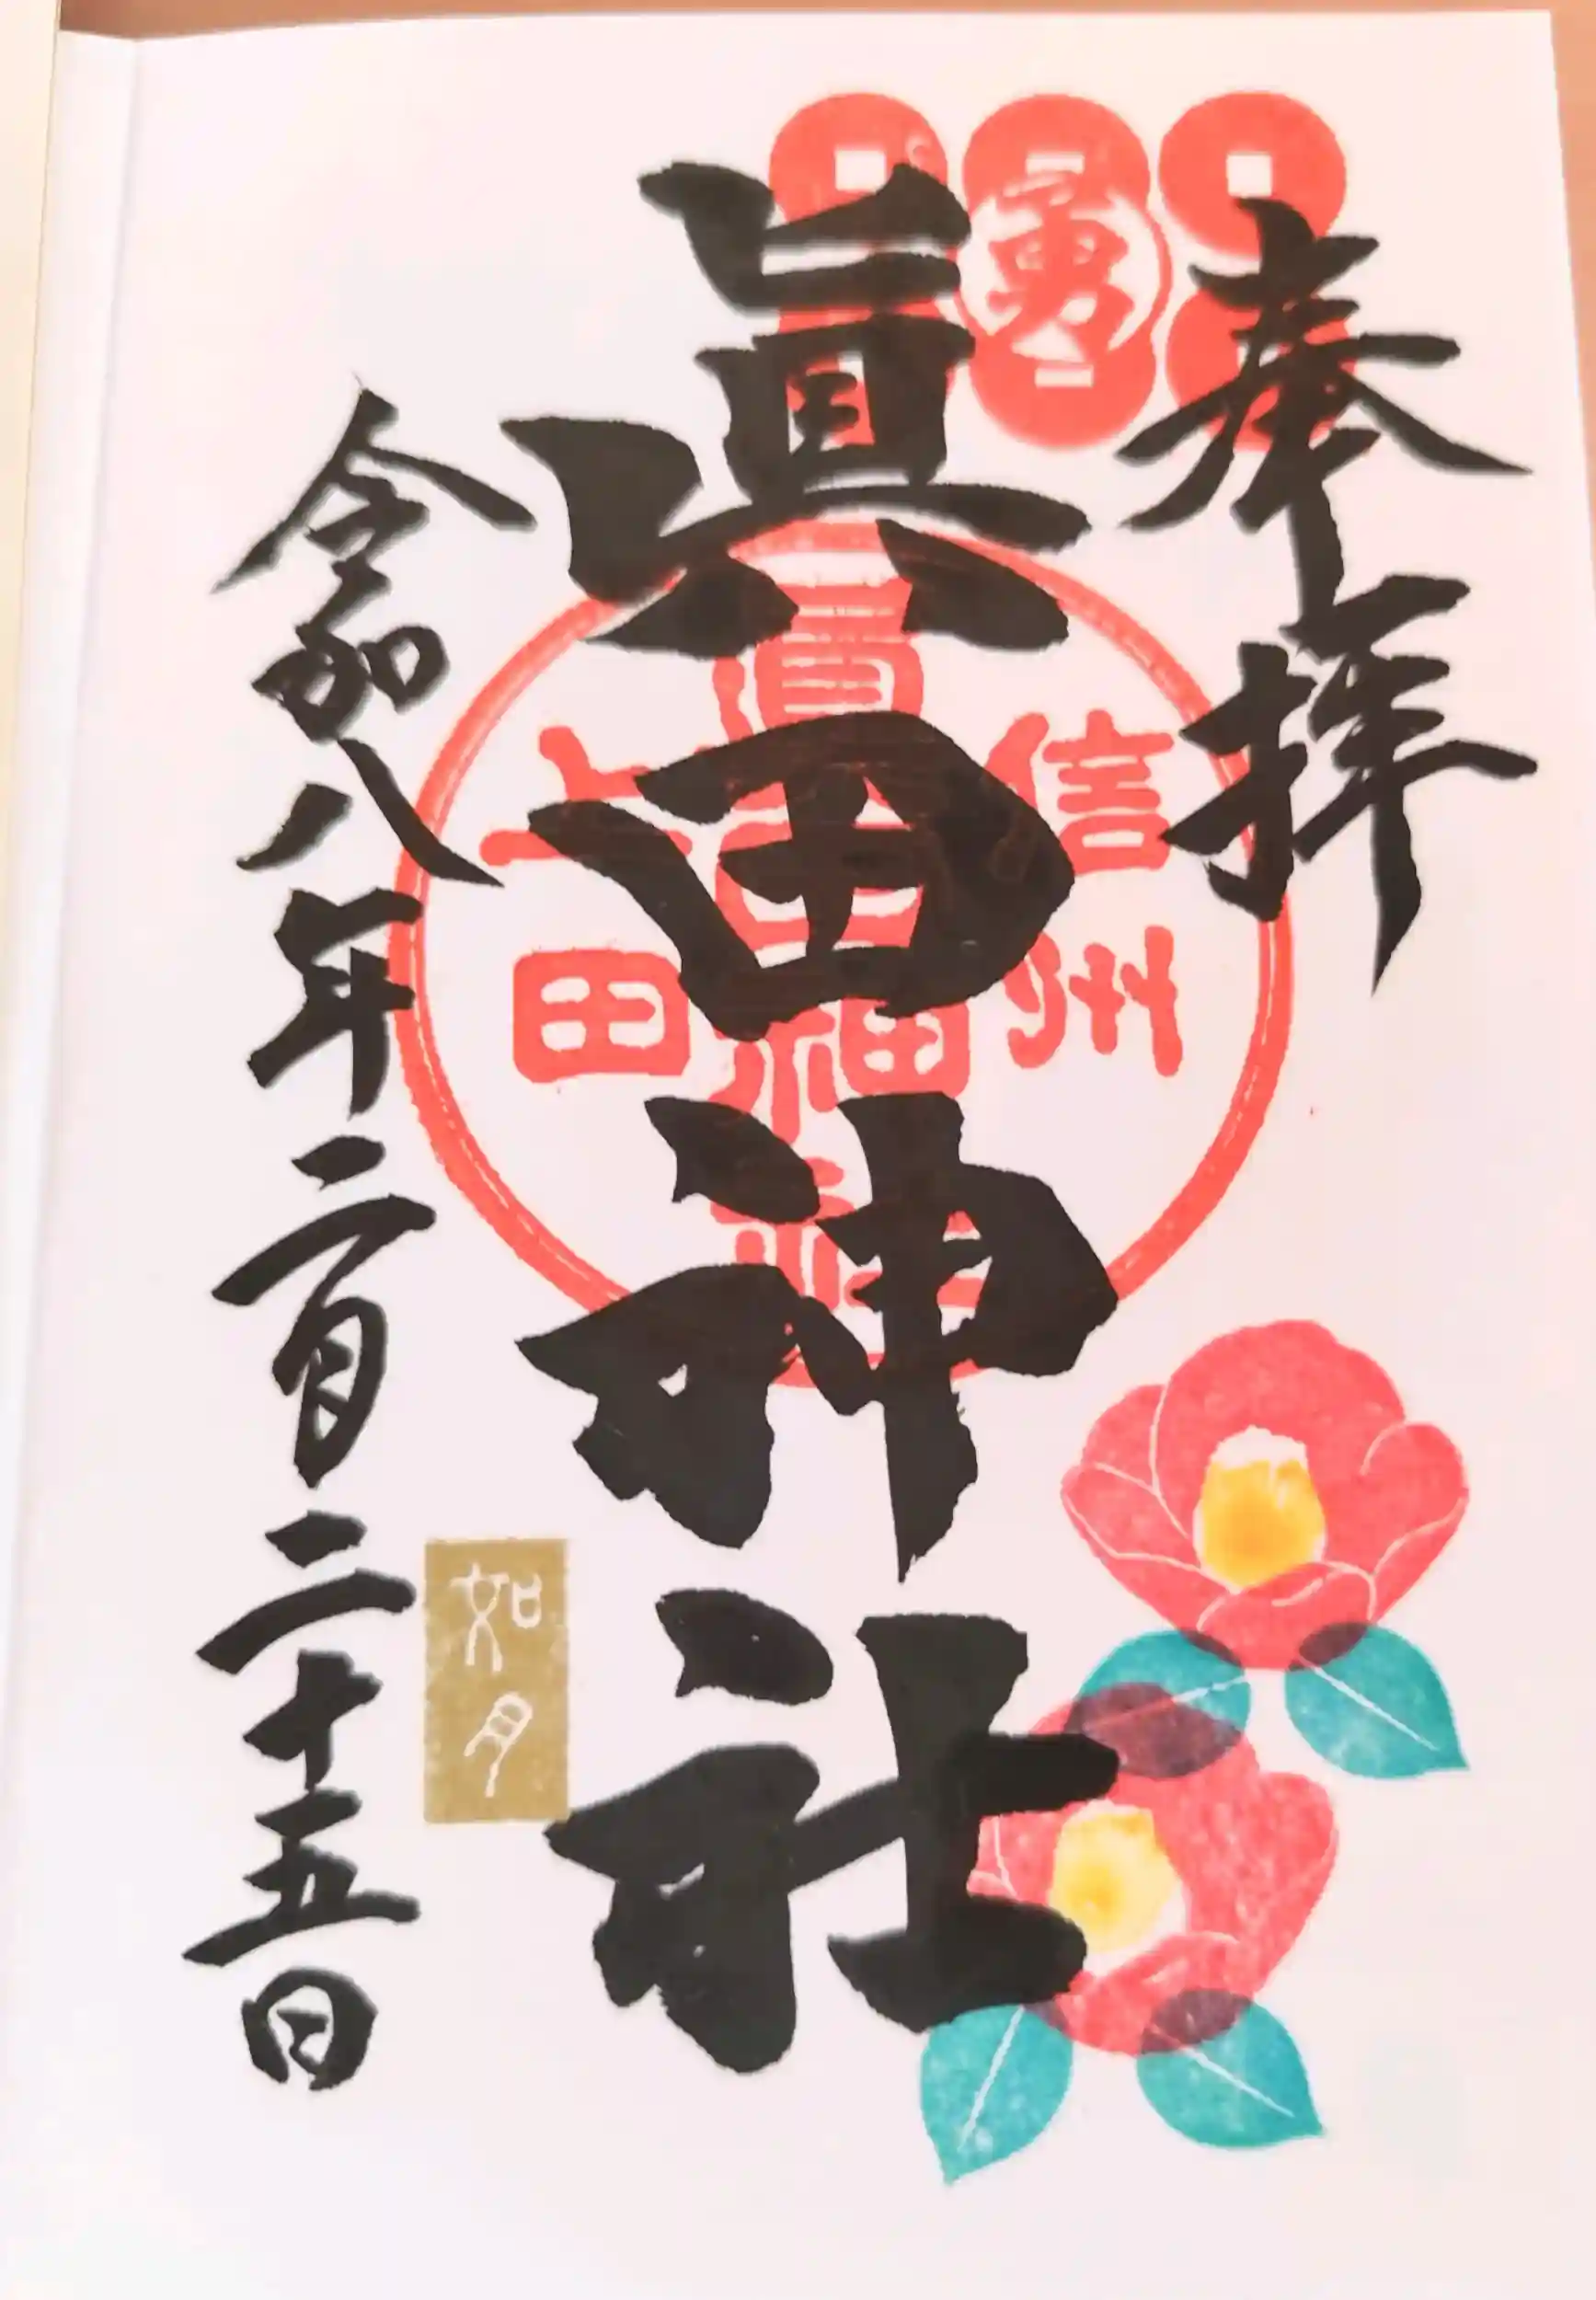 奉拝
勇
眞田神社
信州
眞田神社
上田
如月
令和八年二月二十五日